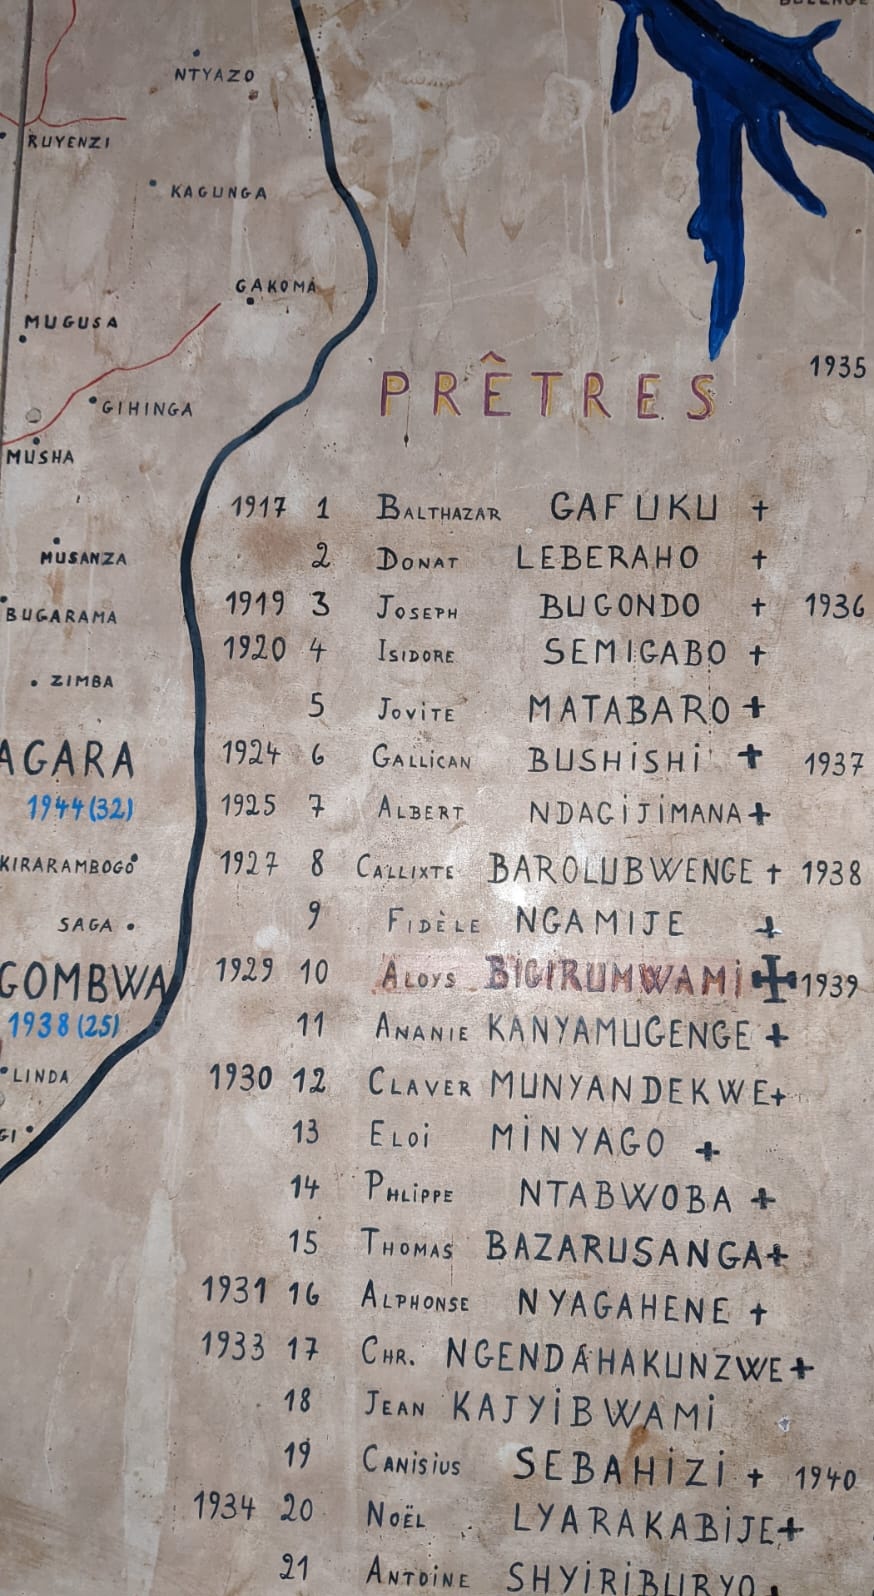 NTYAZO
RUYENZI
KAGUNGA
GAKOMA
MUGUSA
GIHINGA
MUSHA
MUSANZA
BUGARAMA
ZIMBA
AGARA
1944 (32)
KIRARAMBOGO
SAGA
GOMBWA
1938 (25)
LINDA
GI
PRÊTRES
1935
1917 1 BALTHAZAR GAFUKU +
2 DONAT LEBERAHO +
1919 3 JOSEPH BUGONDO + 1936
1920 4 ISIDORE SEMIGABO +
5 JOVITE MATABARO +
1924 6 GALLICAN BUSHISHI + 1937
1925 7 ALBERT NDAGIJIMANA +
1927 8 CALLIXTE BAROLUBWENGE + 1938
9 FIDÈLE NGAMIJE +
1929 10 ALOYS BIGIRUMWAMI ✠ 1939
11 ANANIE KANYAMUGENGE +
1930 12 CLAVER MUNYANDEKWE +
13 ELOI MINYAGO +
14 PHLIPPE NTABWOBA +
15 THOMAS BAZARUSANGA +
1931 16 ALPHONSE NYAGAHENE +
1933 17 CHR. NGENDAHAKUNZWE +
18 JEAN KAJYIBWAMI
19 CANISIUS SEBAHIZI + 1940
1934 20 NOËL LYARAKABIJE +
21 ANTOINE SHYIRIBURYO